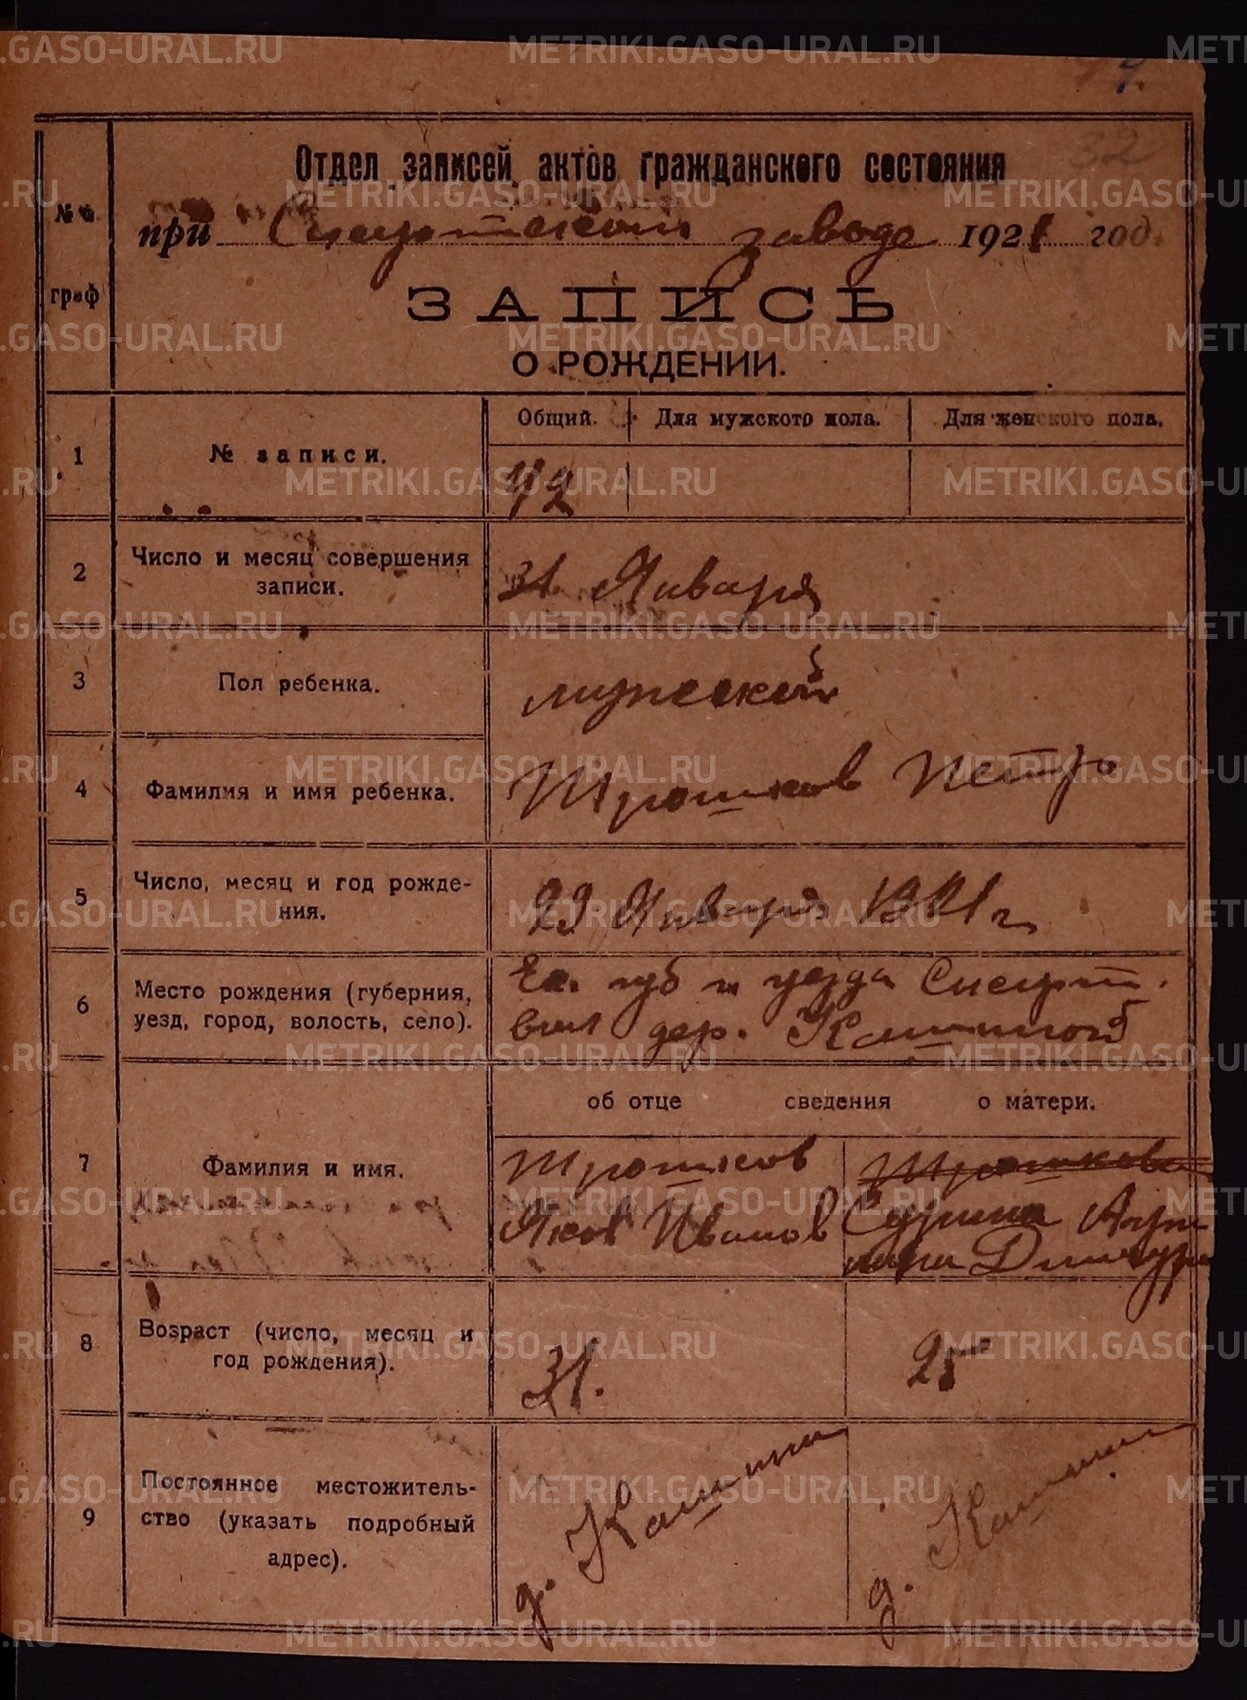 32
Отдел записей актов гражданского состояния
№№ при Сысертском заводе 1921 год.
граф
ЗАПИСЬ
О РОЖДЕНИИ.
Общий. Для мужского пола. Для женского пола.
1 № записи. 42
2 Число и месяц совершения записи.
31 Января
3 Пол ребенка. мужской
4 Фамилия и имя ребенка. Трошков Петр
5 Число, месяц и год рожде-
ния. 29 Января 1921 г.
6 Место рождения (губерния,
уезд, город, волость, село).
Ек. губ и уезда Сысерт.
вол дер. Кашиной
об отце сведения о матери.
7 Фамилия и имя.
Трошков
Яков Иванов
Трошкова
Сурина
Дмитр
8 Возраст (число, месяц и
год рождения).
31. 25
9 Постоянное местожитель-
ство (указать подробный
адрес).
д. Кашина
д. Кашина
METRIKI.GASO-URAL.RU